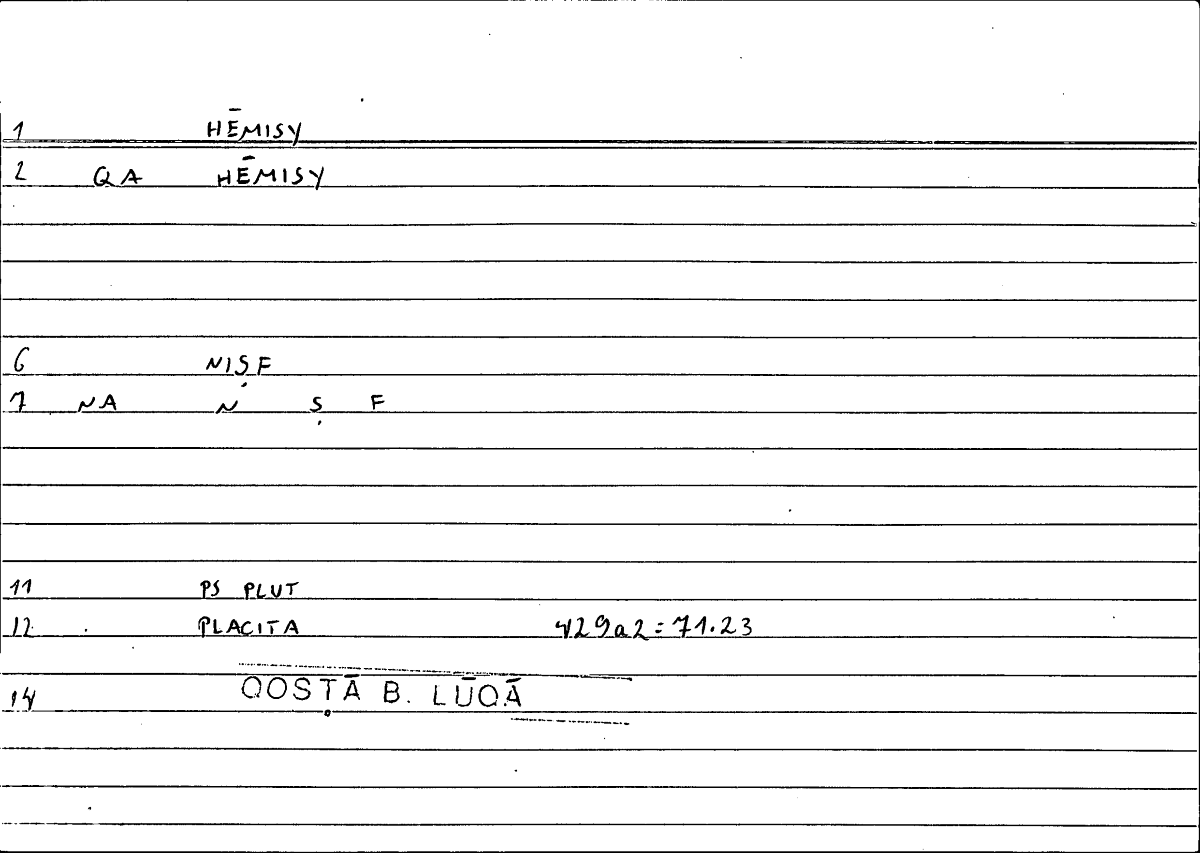 1 HĒMISY
2 QA HĒMISY
6 NIṢF
7 NA N Ṣ F
11 PS PLUT
12 PLACITA 429a2=71.23
14 QOSṬĀ B. LŪQĀ